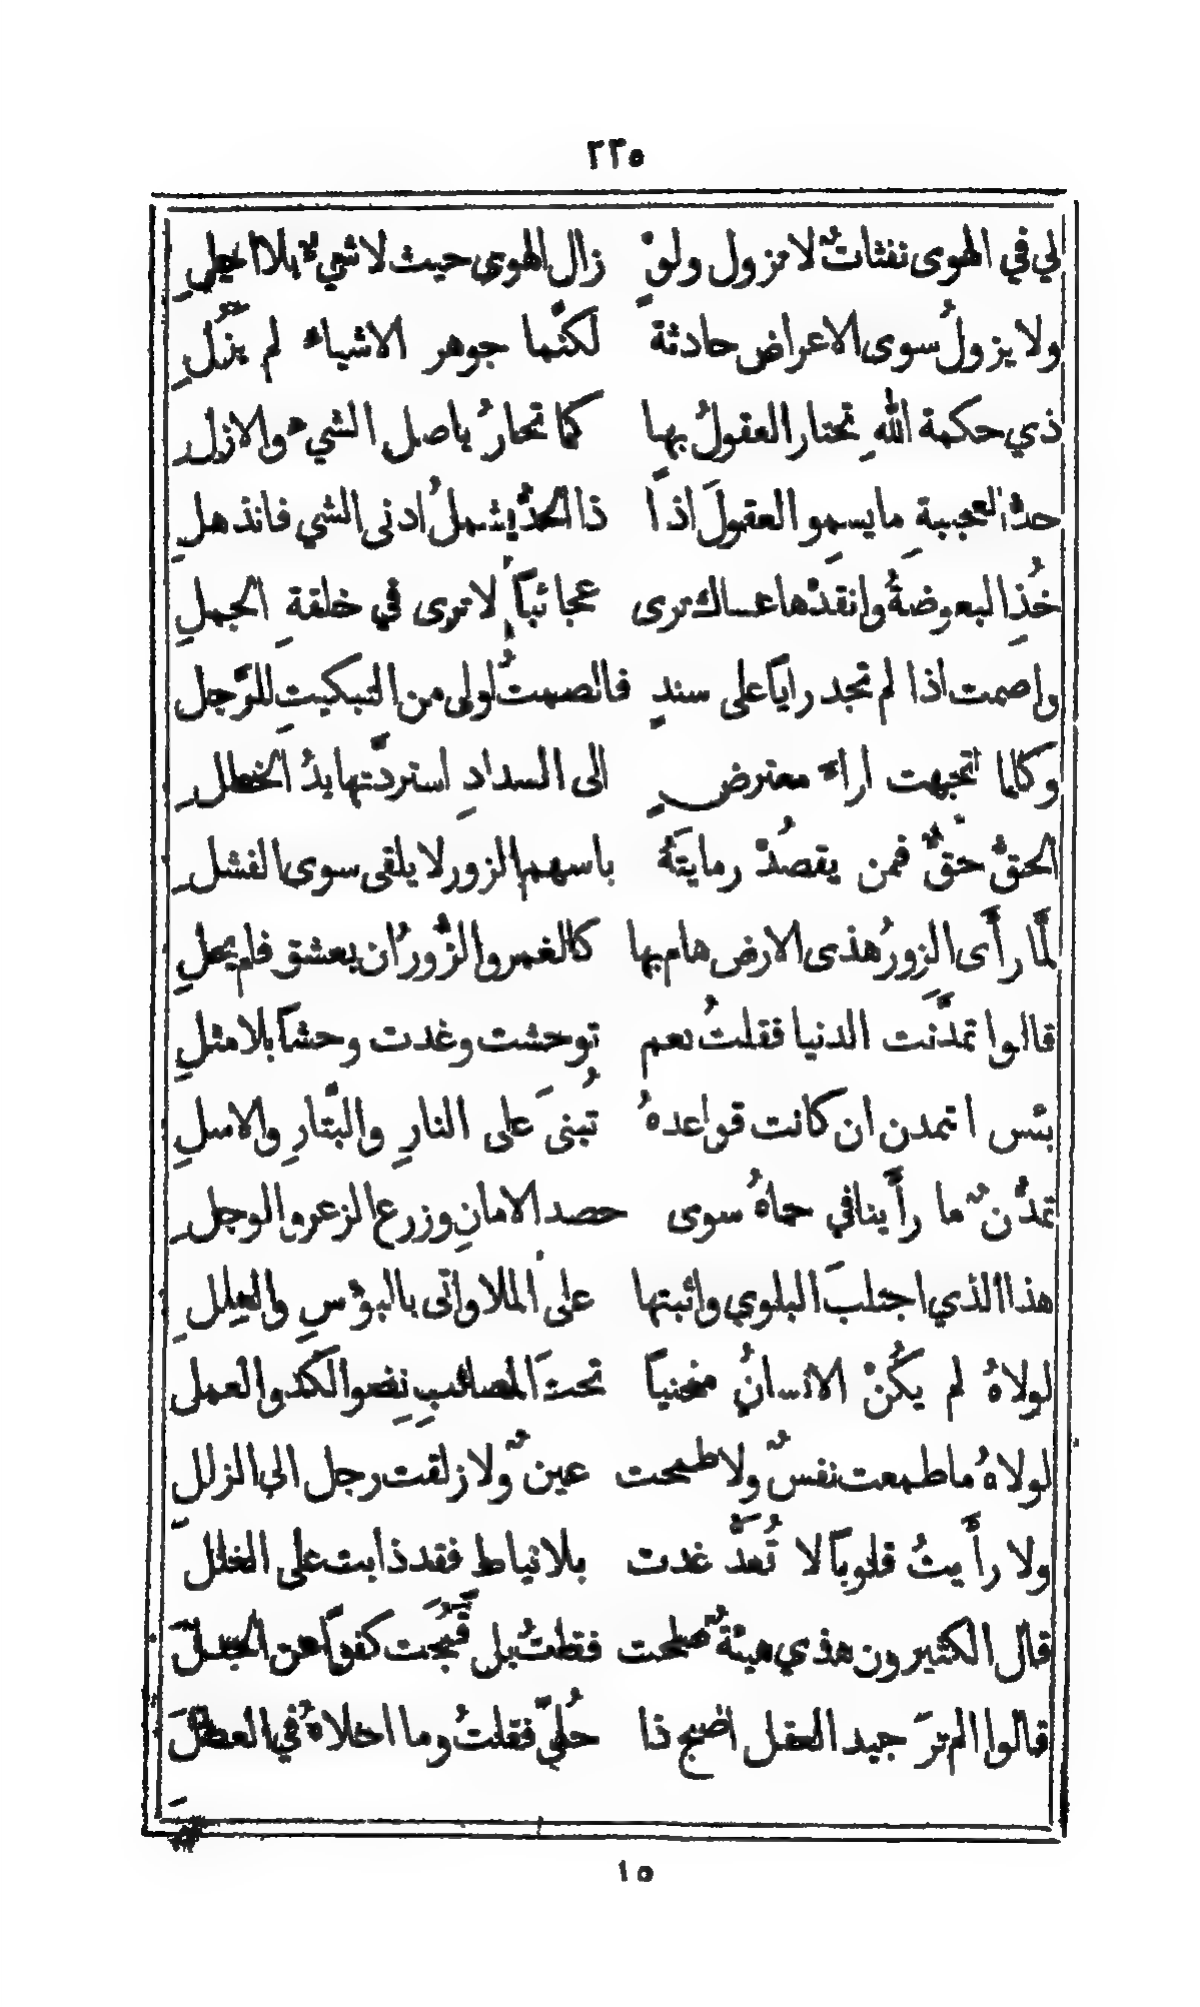 ٢٢٥
لي في الهوى نفثاتٌ لا تزول ولوْ زال الهوى حيث لا شيءٌ بلا اجلِ
ولا يزولُ سوى الاعراض حادثةً لكنَّما جوهر الاشياء لم يَزُلِ
ذي حكمة اللهِ تحتار العقولُ بها كما تحارُ باصل الشيء والازلِ
حدُّ العجيبةِ ما يسمو العقولَ اذاً ذا الحدُّ يشملُ ادنى الشيِ فانذهلِ
خُذِ البعوضةَ وانقدْها عساك ترى عجائباً لا ترى في خلقةِ الجملِ
واصمت اذا لم تجد راياً على سندٍ فالصمتُ اولى من التبكيتِ للرَّجل
وكلما اتجهت اراءُ معترضٍ الى السدادِ استردَّتها يدُ الخطلِ
الحقُّ حقٌّ فمن يقصُدْ رمايتَهُ باسهم الزور لا يلقى سوى الفشلِ
لمَّا رأَى الزورُ هذى الارض هام بها كالغمر والزُّورُ ان يعشق فلم يحلِ
قالوا تمدَّنت الدنيا فقلتُ نعم توحشت وغدت وحشاً بلا مثلِ
بئس التمدن ان كانت قواعدهُ تُبنىَ على النارِ والبتَّارِ والاسلِ
تمدُّنٌ ما رأَينا في حماهُ سوى حصد الامانِ وزرع الزعر والوجلِ
هذا الذي اجتلبَ البلوي واثبتها على الملا واتى بالبؤسِ والعِللِ
لولاهُ لم يكُنْ الانسانُ منحنياً تحتَ المصائبِ نِضو الكَدِ والعمل
لولاهُ ما طمعت نفسٌ ولا طمحت عينٌ ولا زلقت رجل الى الزللِ
ولا رأَيتُ قلوباً لا تُعَدُّ غدت بلا نياط فقد ذابت على الغلل
قال الكثيرون هذي هيئةٌ صلحت فقلتُ بل قَبُحَت كفواً عن الجدلَ
قالوا الم ترَ جيد العقل اضبح ذا حُليٍّ فقلتُ وما احلاهُ في العطلِ
١٥